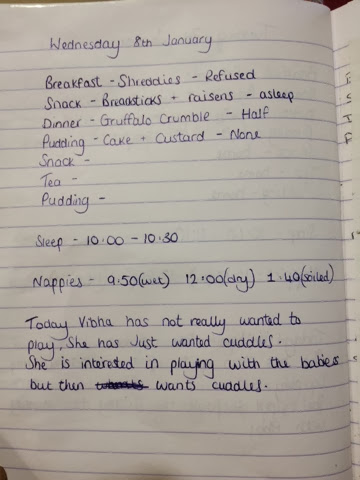 Wednesday 8th January
Breakfast - Shreddies - Refused
Snack - Breadsticks + raisens - asleep
Dinner - Gruffalo Crumble - Half
Pudding - Cake + Custard - None
Snack -
Tea -
Pudding -
Sleep - 10:00 - 10:30
Nappies - 9.50(wet) 12:00(dry) 1.40(soiled)
Today Vibha has not really wanted to
play. She has Just wanted cuddles.
She is interested in playing with the babies
but then wants cuddles.